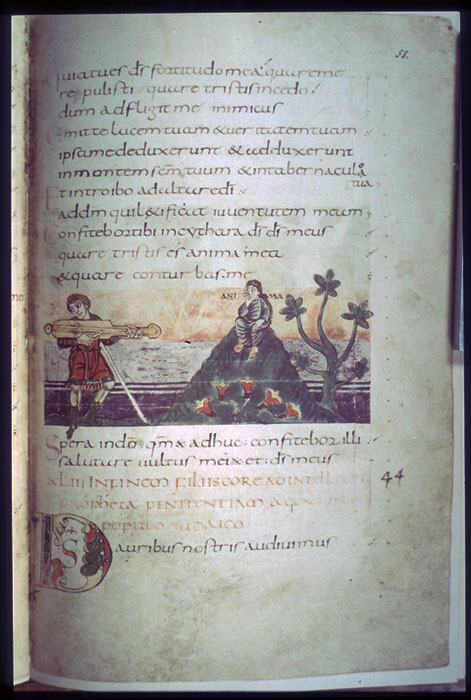 55.
quia tu es ds fortitudo mea quare me
reppulisti quare tristis incedo
dum adfligit me inimicus
Emitte lucem tuam & ueritatem tuam
ipsa me deduxerunt & adduxerunt
in montem scm tuum & in tabernacula
tua
Et introibo ad altare di
ad dm qui l&ificat iuuentutem meam
Confitebor tibi in cythara ds ds meus
quare tristis es anima mea
& quare conturbas me
ANIMA
Spera in dm qm adhuc confitebor illi
salutare uultus mei et ds meus
XLIII IN FINEM FILIIS CORE AD INTELLECTUM
PROPHETA PENITENTIAM AGENTI
POPULO IUDAICO
44
DS auribus nostris audiuimus